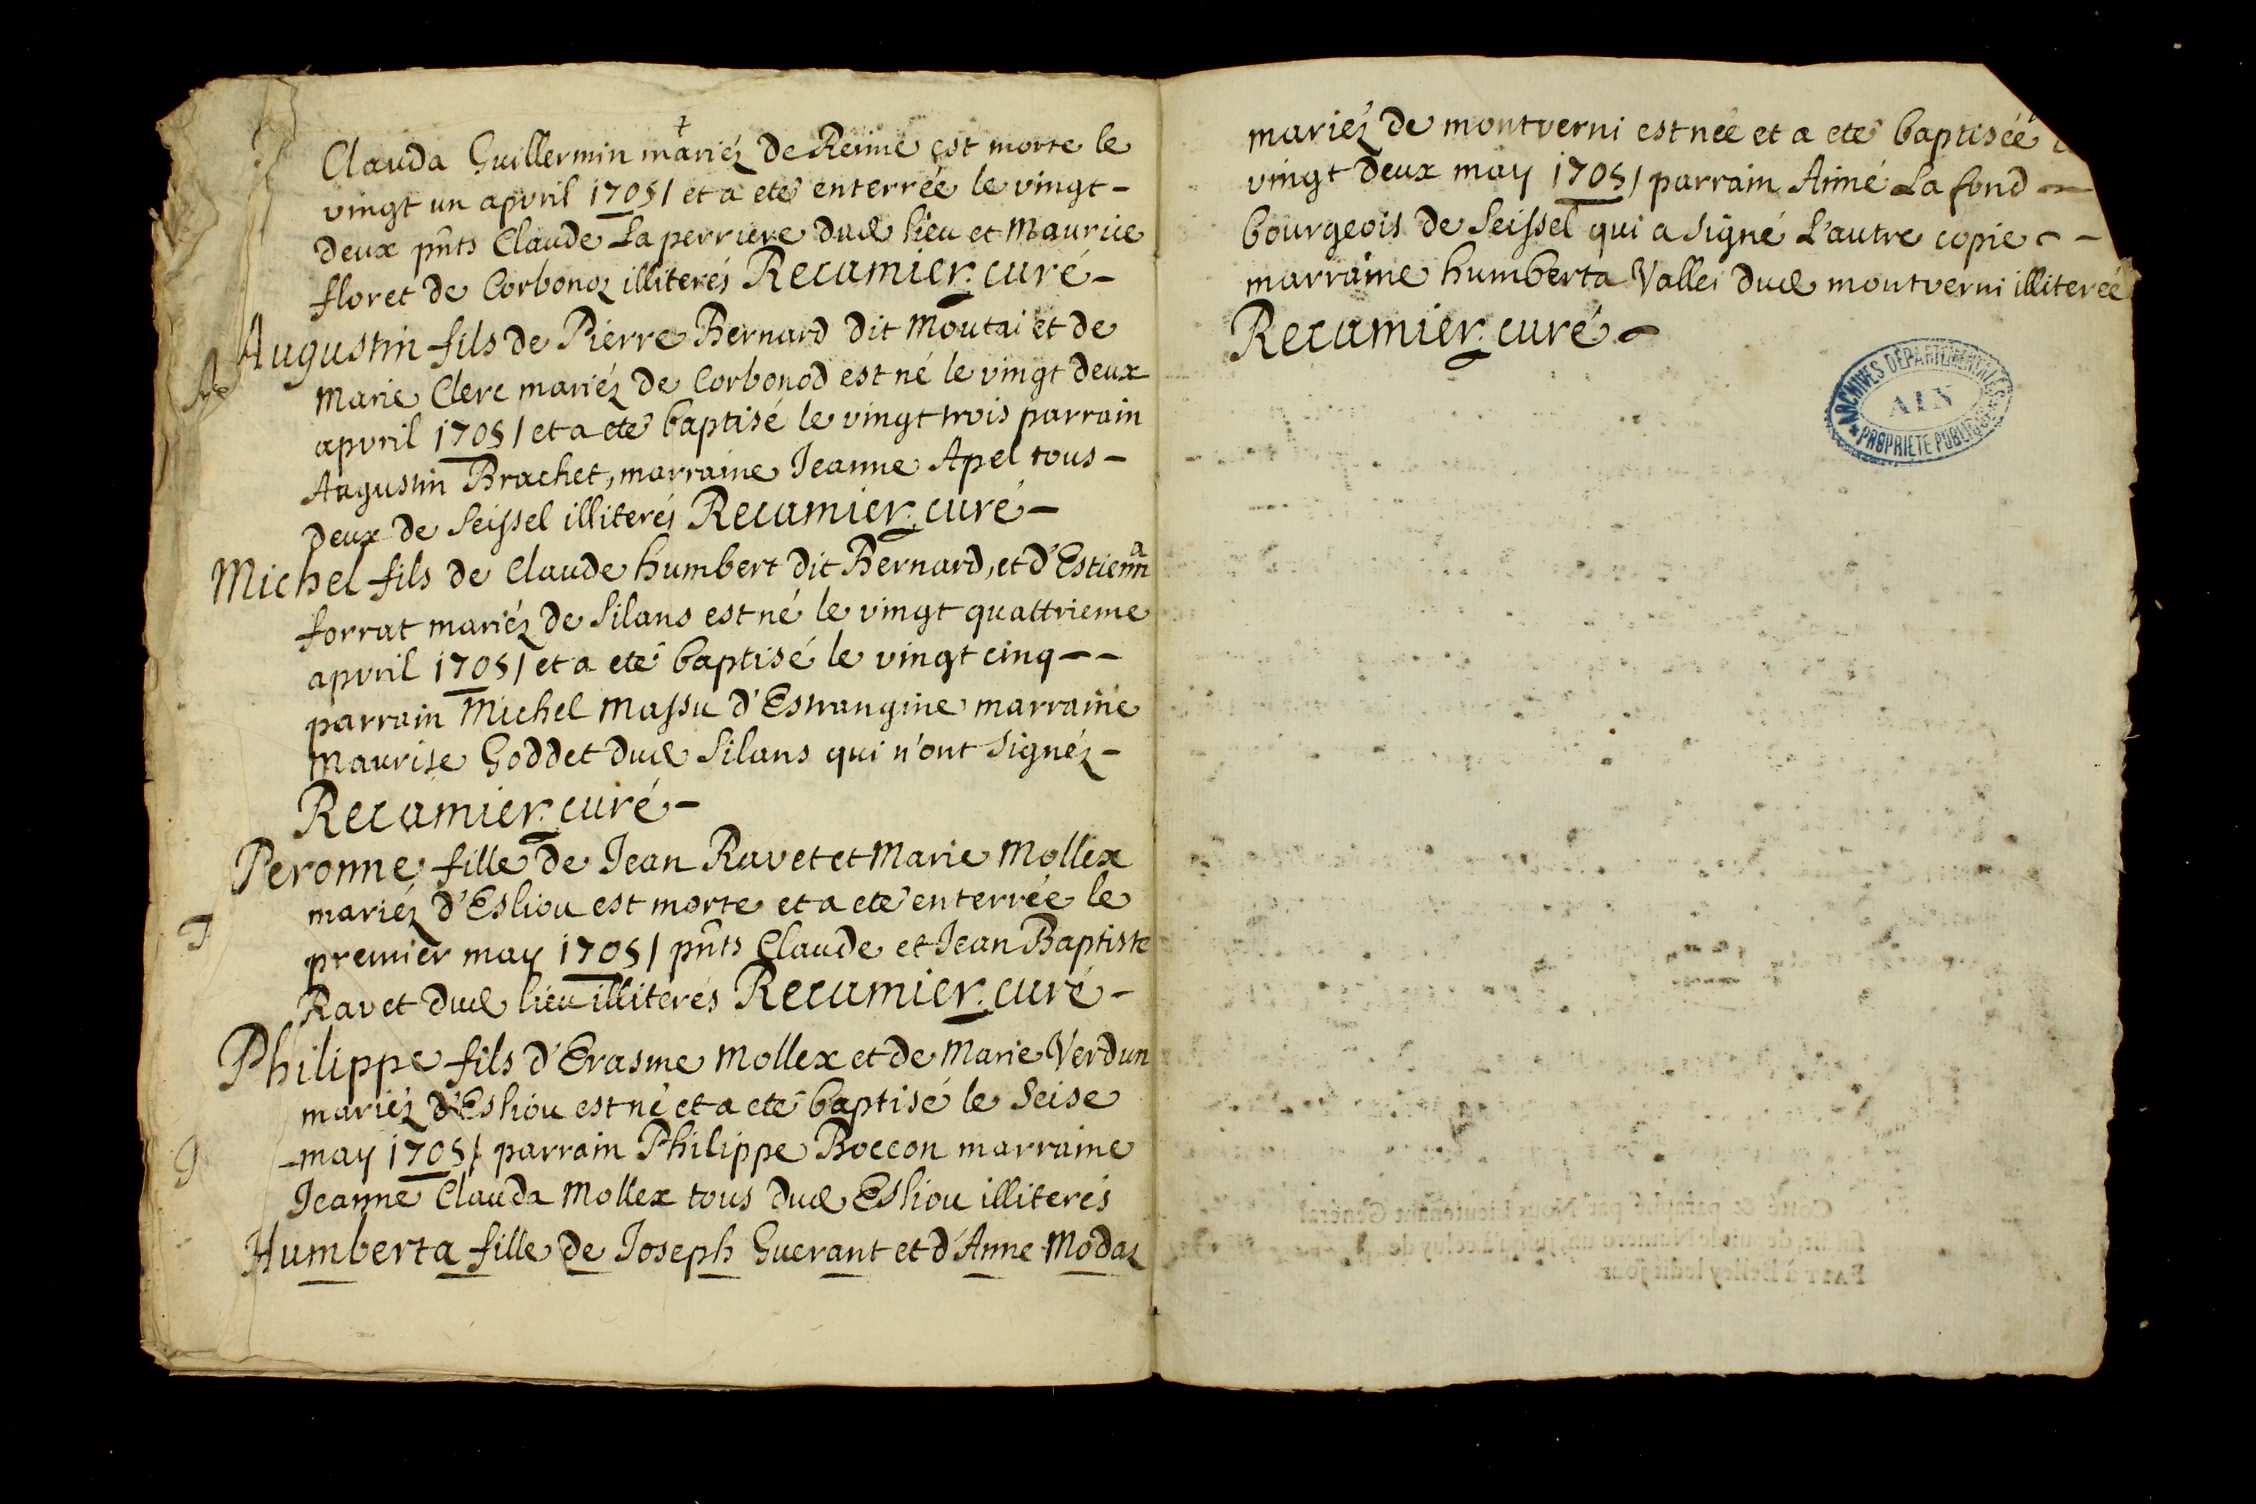 Clauda Guillermin mariéz de Reime est morte le
vingt un apvril 1705/ et a eté enterrée le vingt –
deux pnts Claude La perriere dud lieu et Maurice
floret de Corbonoz illiterés Recamier. curé –
Augustin fils de Pierre Bernard dit Moutai et de
Marie Clerc mariéz de Corbonod est né le vingt deux
apvril 1705/ et a eté baptisé le vingt trois parrain
Augustin Brachet, marraine Jeanne Apel tous –
deux de Seissel illiterés Recamier. curé –
Michel fils de Claude humbert dit Bernard, et d'Estienna
forrat mariéz de Silans est né le vingt quattrieme
apvril 1705/ et a eté baptisé le vingt cinq – –
parrain Michel Massu d'Estrangine marraine
Maurise Goddet dud Silans qui n'ont signéz –
Recamier. curé –
Peronne fille de Jean Ravet et Marie Mollex
mariéz d'Esliou est morte et a eté enterrée le
premier may 1705/ pnts Claude et Jean Baptiste
Ravet dud lieu illiterés Recamier. curé –
Philippe fils d'Erasme Mollex et de Marie Verdun
mariéz d'Esliou est né et a eté baptisé le Seise
– may 1705/ parrain Philippe Boccon marraine
Jeanne Clauda Mollex tous dud Esliou illiterés
Humberta fille de Joseph Guerant et d'Anne Modaz
mariéz de montverni est née et a eté baptisée
vingt deux may 1705/ parrain Aimé La fond –
bourgeois de Seissel qui a signé L'autre copie – –
marraine humberta Vallei dud montverni illiterée
Recamier. curé –
ARCHIVES DÉPARTEMENTALES
AIN
PROPRIÉTÉ PUBLIQUE